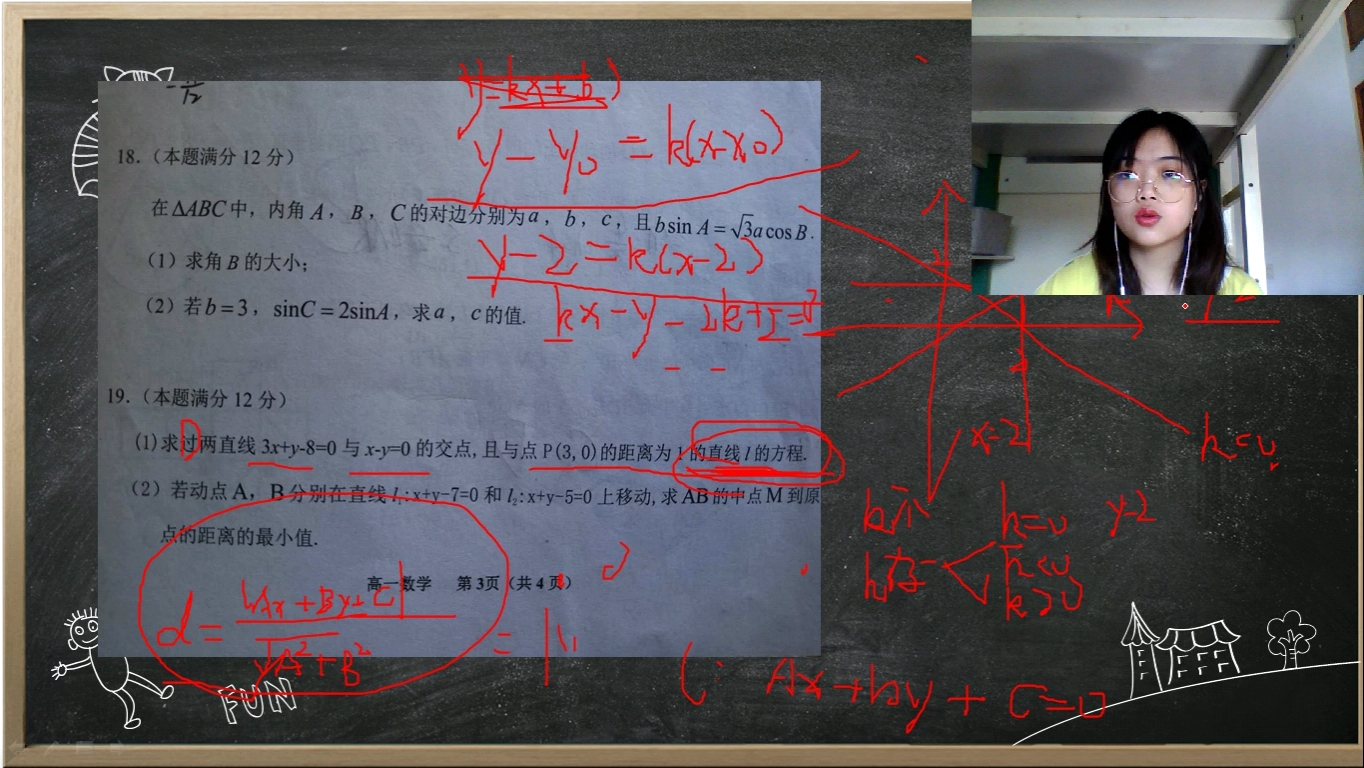 y=kx+b
y-y₀=k(x-x₀)
18.（本题满分 12 分）
在ΔABC中，内角A，B，C的对边分别为a，b，c，且bsinA=√3acosB.
y-2=k(x-2)
（1）求角B的大小；
（2）若b=3，sinC=2sinA，求a，c的值.
kx-y-2k+2=0
19.（本题满分 12 分）
(1)求过两直线 3x+y-8=0 与 x-y=0 的交点,且与点 P(3,0)的距离为 1 的直线 l 的方程.
（2）若动点 A，B分别在直线 l₁:x+y-7=0 和 l₂:x+y-5=0 上移动,求 AB的中点 M 到原
点的距离的最小值.
高一数学 第3页（共 4 页）
x=2
k<0
k不
k=0
y=2
k存
k<0
k>0
d=|Ax+By+C|/√A²+B²
=
Ax+by+C=0
FUN